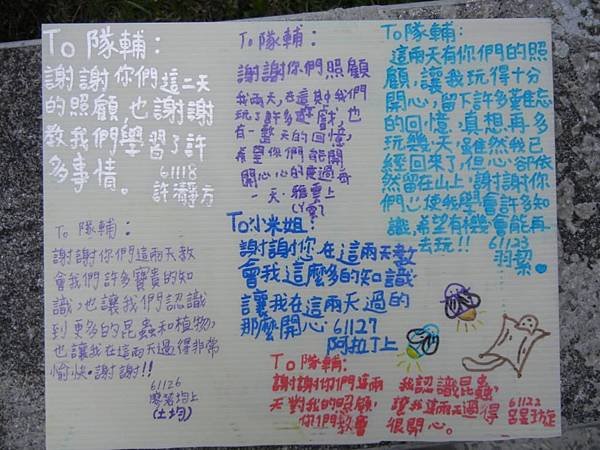 To 隊輔：
謝謝你們這二天
的照顧，也謝謝
教我們學習了許
多事情。
61118
許瀞方
To 隊輔：
謝謝你們照顧
我兩天，在這其我們
玩了許多遊戲，也
有一整天的回憶，
希望你們能開
開心心的度過每
一天。雅雲上
To 隊輔：
這兩天有你們的照
顧，讓我玩得十分
開心，留下許多難忘
的回憶，真想再多
玩幾天，雖然我已
經回來了，但心卻依
然留在山上，謝謝你
們心使我學會許多知
識，希望有機會能再
去玩!! 61123
羽絜
To 隊輔：
謝謝你們這兩天教
會我們許多寶貴的知
識，也讓我們認識
到更多的昆蟲和植物，
也讓我在這兩天過得非常
愉快。謝謝!!
61126
廖若均上
(土均)
To 小米姐：
謝謝你在這兩天教
會我這麼多的知識
讓我在這兩天過的
那麼開心 61127
阿拉丁上
To 隊輔：
謝謝你們這兩
天對我的照顧，
你們教會
我認識昆蟲，
讓我這兩天過得
很開心。
61122
呂昱旋